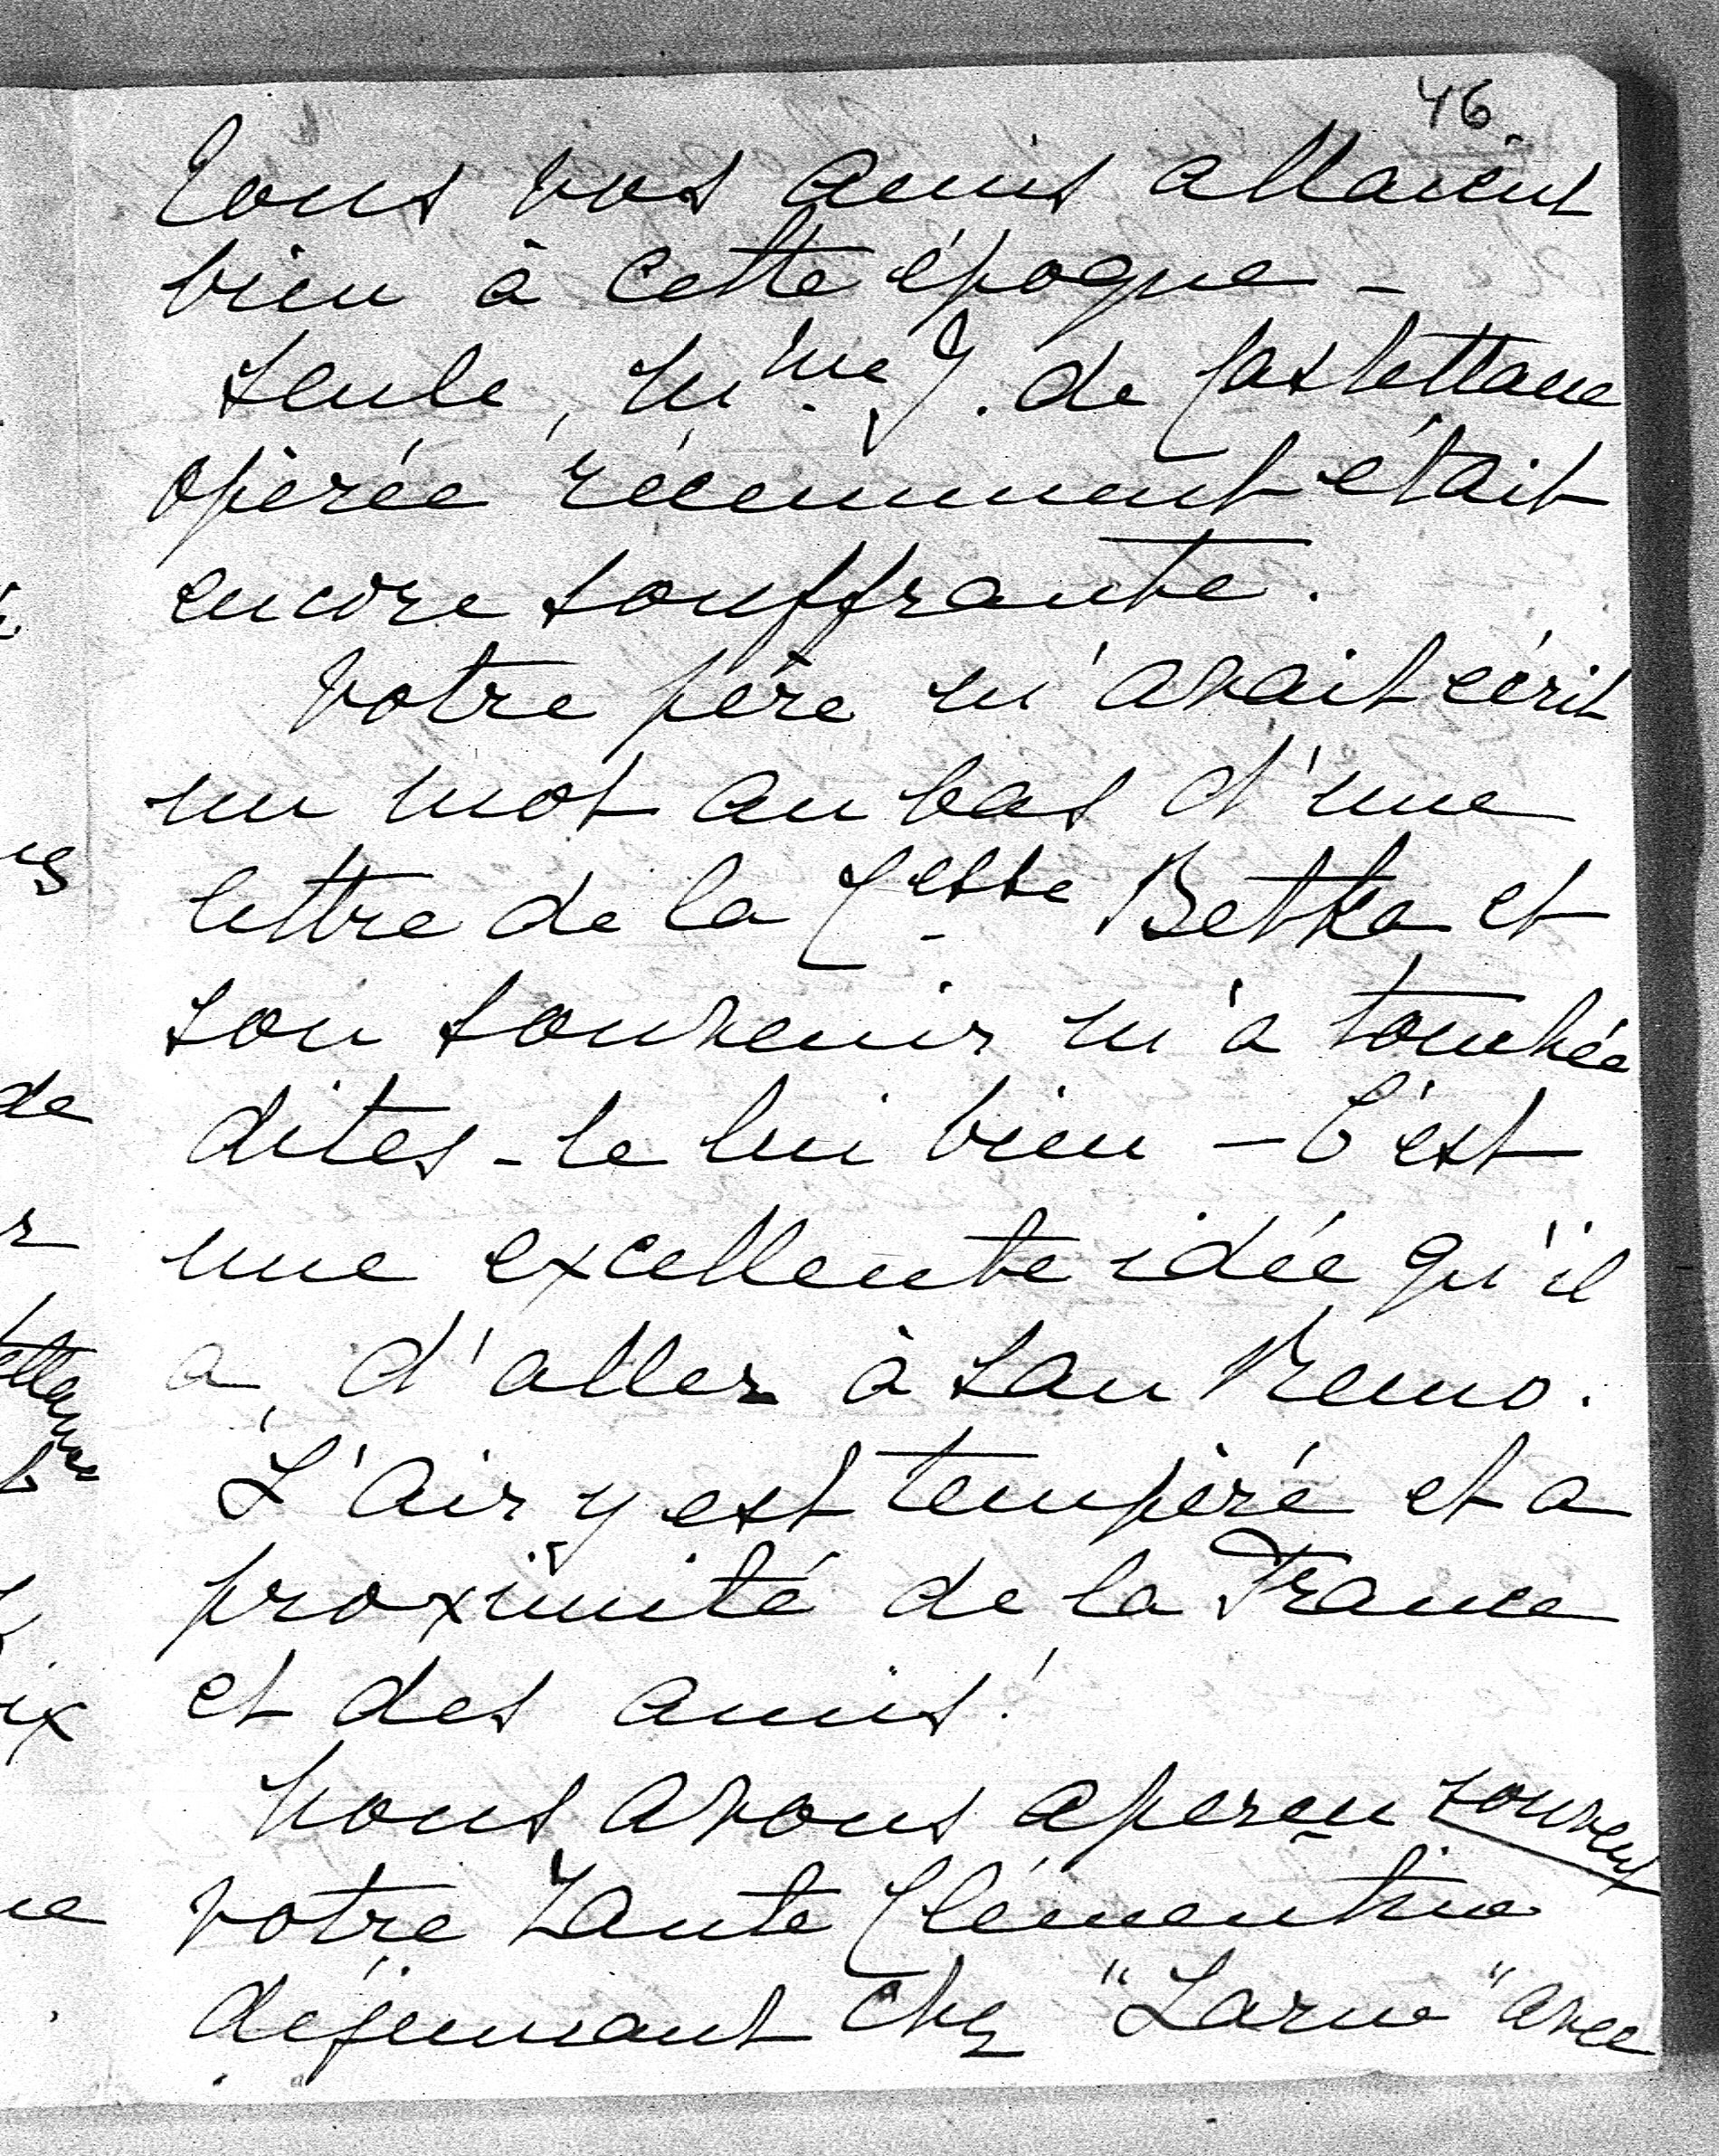 46.
Tous vos amis allaient
bien à cette époque -
seule, Mme J. de Castellane
opérée récemment était
encore souffrante.
Votre père m'avait écrit
un mot au bas d'une
lettre de la Cesse Betka et
son souvenir m'a touchée
dites-le lui bien - C'est
une excellente idée qu'il
a, d'aller à San Remo.
L'air y est tempéré et a
proximité de la France
et des amis!
Nous avons aperçu souvent
votre Tante Clémentine
déjeunant chez "Larue" avec